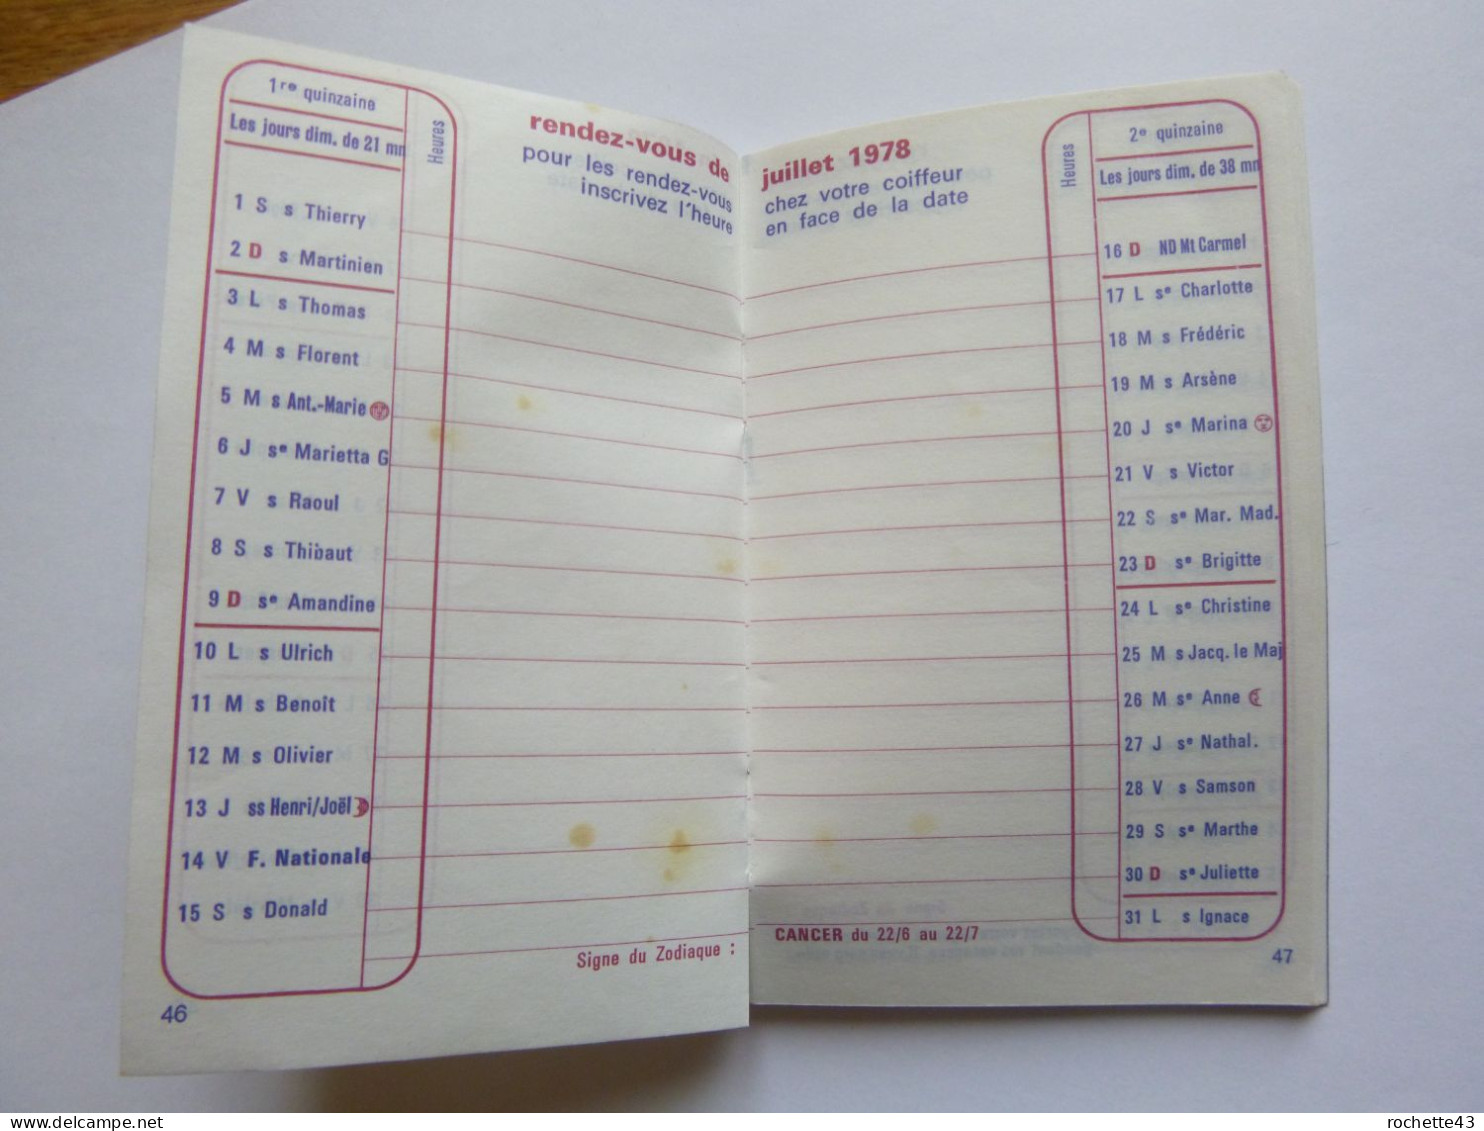 1re quinzaine
Les jours dim. de 21 mn
Heures
1 S s Thierry
2 D s Martinien
3 L s Thomas
4 M s Florent
5 M s Ant.-Marie
6 J se Marietta G
7 V s Raoul
8 S s Thibaut
9 D se Amandine
10 L s Ulrich
11 M s Benoît
12 M s Olivier
13 J ss Henri/Joël
14 V F. Nationale
15 S s Donald
46
rendez-vous de
pour les rendez-vous
inscrivez l'heure
Signe du Zodiaque :
juillet 1978
chez votre coiffeur
en face de la date
CANCER du 22/6 au 22/7
Heures
2e quinzaine
Les jours dim. de 38 mn
16 D ND Mt Carmel
17 L se Charlotte
18 M s Frédéric
19 M s Arsène
20 J se Marina
21 V s Victor
22 S se Mar. Mad.
23 D se Brigitte
24 L se Christine
25 M s Jacq. le Maj
26 M se Anne
27 J se Nathal.
28 V s Samson
29 S se Marthe
30 D se Juliette
31 L s Ignace
47
rochette43